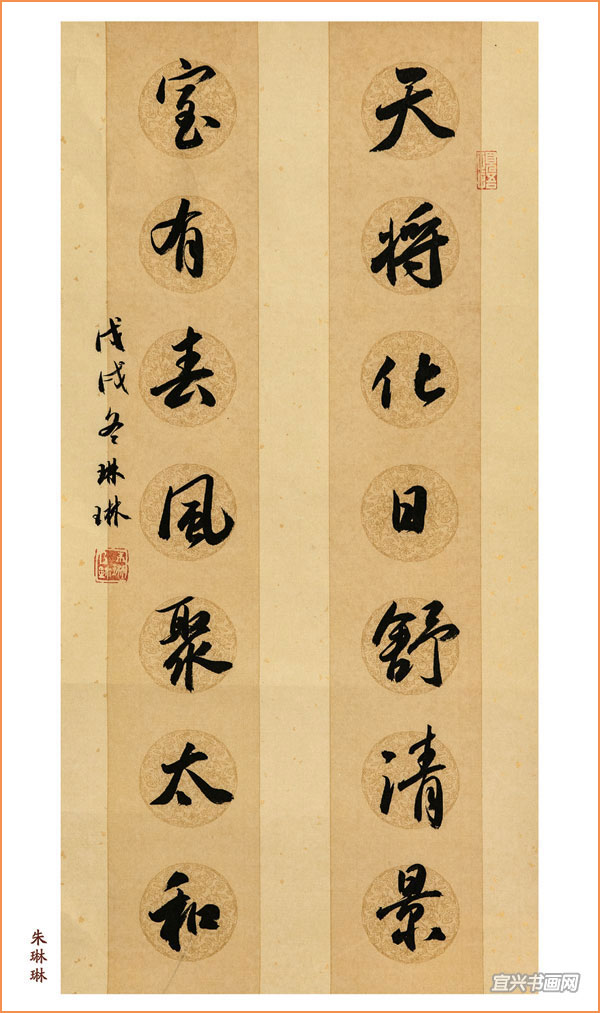 天将化日舒清景
室有春风聚太和
戊戌冬琳琳
朱琳琳
宜兴书画网